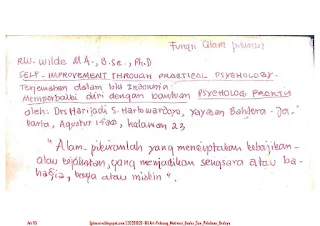 Fungsi alam pikiran
R.W. Wilde M.A., B.Se., Ph.D
SELF-IMPROVEMENT THROUGH PRACTICAL PSYCHOLOGY.
Terjemahan dalam
Memperbaiki diri dengan bantuan PSYCHOLOGI PRAKTIS
oleh: Drs Harijadi S. Hartowardojo, Yayasan Bahtera - Ja-
karta, Agustus halaman 23
"Alam-pikiranlah yang menciptakan kebajikan-
atau kejahatan, yang menjadikan sengsara atau ba-
hagia, kaya atau miskin".